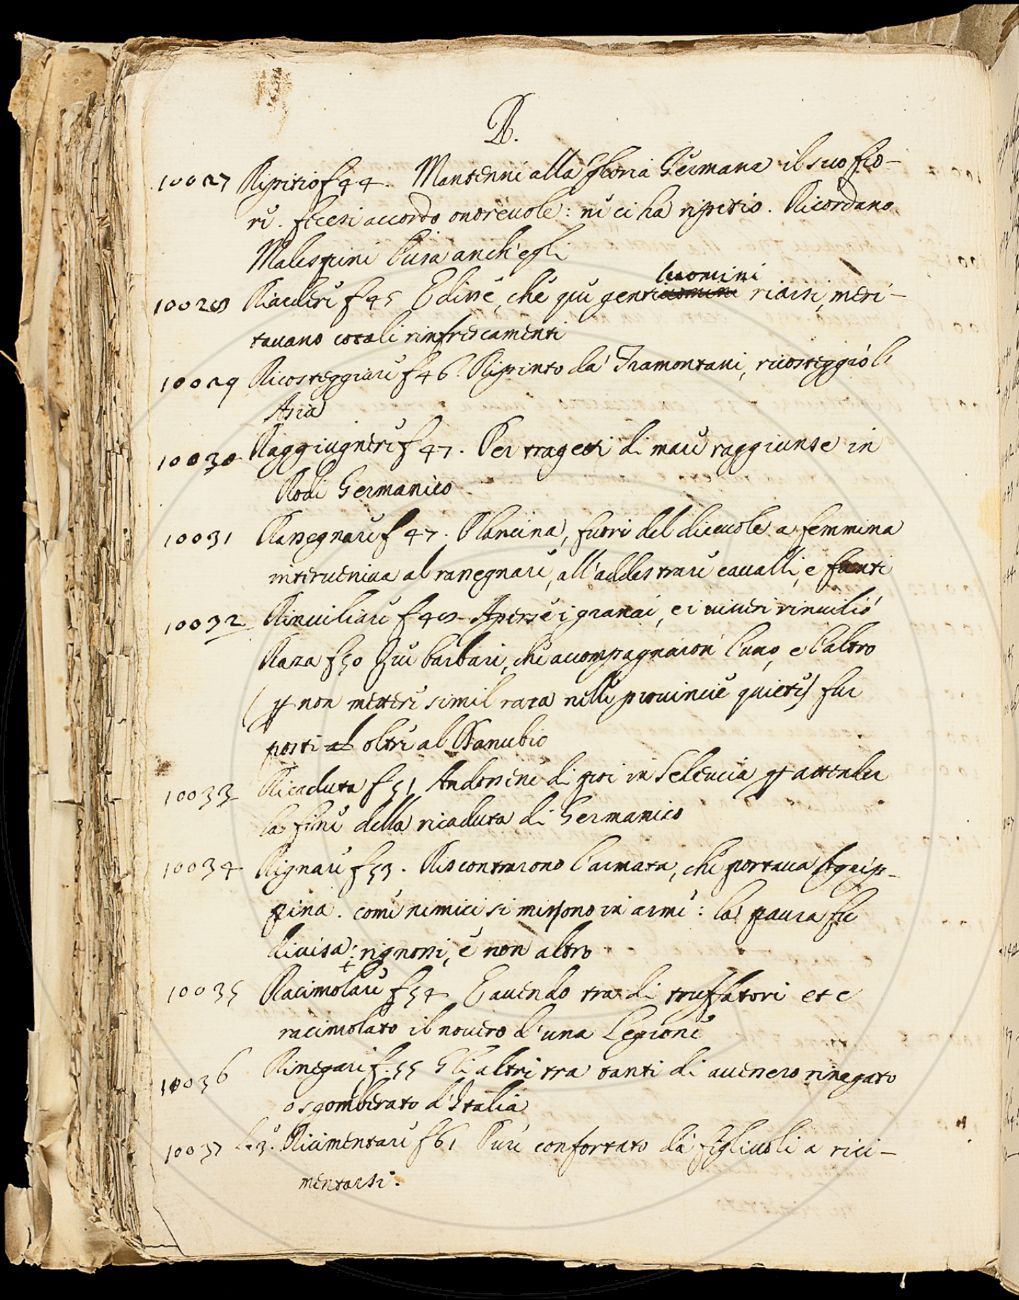 R.
10027 Ripitio f 44. Mantenni alla gloria Germana il suo fio-
ri. feceri accordo onorevole: ni ci ha ripitio. Ricordano
Malespini Usa anch'egli
luomini
10028 Riaveri f 45 E disse, che piu genti riarsi, meri-
tavano cotali rinfrescamenti
10029 Ricosteggiari f 46 Ripinto da Tramontani, ricosteggiò l'
Asia
10030 Raggiugneri f 47. Per tragetti di mari raggiunse in
Rodi Germanico
10031 Rasegnari f 47. Plancina, fuori del dicevole a femmina
interveniva al rasegnari, all'addestrari cavalli, e fanti
10032 Rinviliari f 48 Aperse i granai, e i viveri rinviliò
Raza f 50 Gli barbari, che accompagnaron l'uno, e l'altro
(p non mettersi simil raza nelli provincie quieti) fur
posti oltri al Danubio
10033 Ricaduta f 51 Andonene di poi in Seleucia p attender
la fine della ricaduta di Germanico
10034 Rignari f 53. Riscontrarono l'armata, che portava Agrip-
pina. come nemici si misono in armi: la paura fe
divisa: rignossi, e non altro
10035 Racimolari f 54 E avendo tra di truffatori etc
racimolato il novero d'una Legione
10036 Rinegari f. 55 Gli altri tra tanti di avenero rinegato
o sgomberato d'Italia
10037 L. 3. Ricimentari f 61 Puri confortato da figliuoli a rici-
mentarsi.